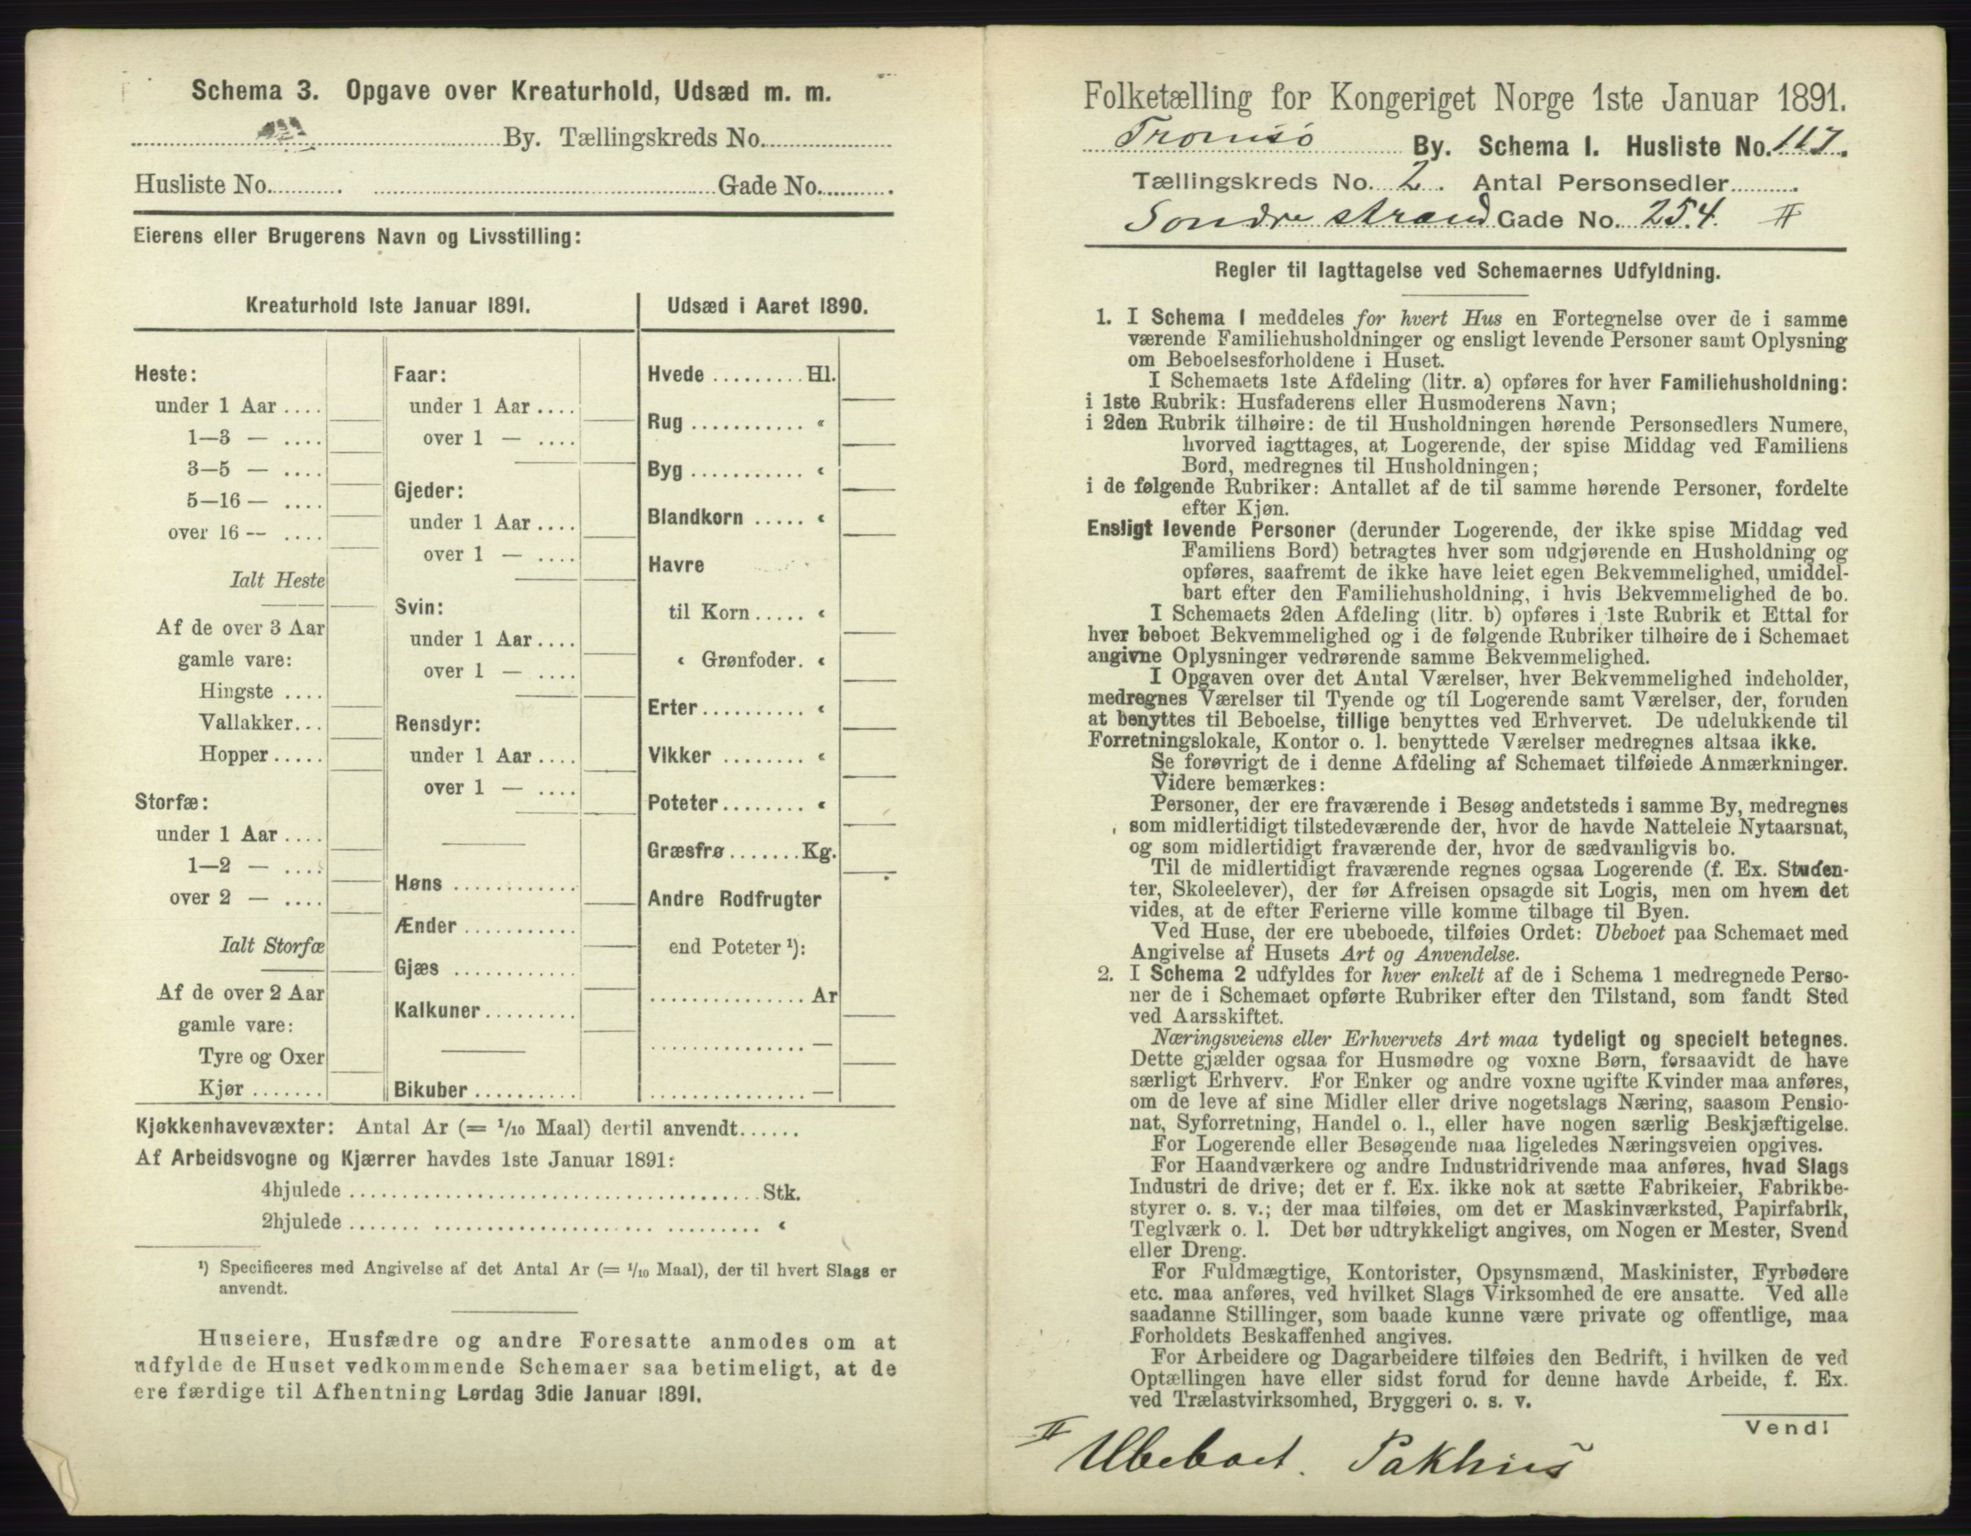 Schema 3. Opgave over Kreaturhold, Udsæd m. m.
By. Tællingskreds No.
Husliste No. Gade No.
Eierens eller Brugerens Navn og Livsstilling:
Kreaturhold 1ste Januar 1891.
Heste:
under 1 Aar ....
1—3 — ....
3—5 — ....
5—16 — ....
over 16 — ....
Ialt Heste
Af de over 3 Aar
gamle vare:
Hingste ....
Vallakker...
Hopper.....
Storfæ:
under 1 Aar ....
1—2 — ....
over 2 — ....
Ialt Storfæ
Af de over 2 Aar
gamle vare:
Tyre og Oxer
Kjør .......
Faar:
under 1 Aar ....
over 1 — ....
Gjeder:
under 1 Aar ....
over 1 — ....
Svin:
under 1 Aar ....
over 1 — ....
Rensdyr:
under 1 Aar ....
over 1 — ....
Høns ............
Ænder ...........
Gjæs ............
Kalkuner.........
Bikuber ..........
Udsæd i Aaret 1890.
Hvede ......... Hl.
Rug ........... «
Byg ........... «
Blandkorn ..... «
Havre
til Korn ..... «
« Grønfoder. «
Erter.......... «
Vikker ........ «
Poteter........ «
Græsfrø....... Kg.
Andre Rodfrugter
end Poteter ¹):
............... Ar
............... —
............... —
Kjøkkenhavevæxter: Antal Ar (= 1/10 Maal) dertil anvendt......
Af Arbeidsvogne og Kjærrer havdes 1ste Januar 1891:
4hjulede ..................................... Stk.
2hjulede ..................................... «
¹) Specificeres med Angivelse af det Antal Ar (= 1/10 Maal), der til hvert Slags er
anvendt.
Huseiere, Husfædre og andre Foresatte anmodes om at
udfylde de Huset vedkommende Schemaer saa betimeligt, at de
ere færdige til Afhentning Lørdag 3die Januar 1891.
Folketælling for Kongeriget Norge 1ste Januar 1891.
Tromsø By. Schema 1. Husliste No. 117.
Tællingskreds No. 2. Antal Personsedler
Sondre strand Gade No. 254. II
Regler til Iagttagelse ved Schemaernes Udfyldning.
1. I Schema 1 meddeles for hvert Hus en Fortegnelse over de i samme
værende Familiehusholdninger og ensligt levende Personer samt Oplysning
om Beboelsesforholdene i Huset.
I Schemaets 1ste Afdeling (litr. a) opføres for hver Familiehusholdning:
i 1ste Rubrik: Husfaderens eller Husmoderens Navn;
i 2den Rubrik tilhøire: de til Husholdningen hørende Personsedlers Numere,
hvorved iagttages, at Logerende, der spise Middag ved Familiens
Bord, medregnes til Husholdningen;
i de følgende Rubriker: Antallet af de til samme hørende Personer, fordelte
efter Kjøn.
Ensligt levende Personer (derunder Logerende, der ikke spise Middag ved
Familiens Bord) betragtes hver som udgjørende en Husholdning og
opføres, saafremt de ikke have leiet egen Bekvemmelighed, umiddel-
bart efter den Familiehusholdning, i hvis Bekvemmelighed de bo.
I Schemaets 2den Afdeling (litr. b) opføres i 1ste Rubrik et Ettal for
hver beboet Bekvemmelighed og i de følgende Rubriker tilhøire de i Schemaet
angivne Oplysninger vedrørende samme Bekvemmelighed.
I Opgaven over det Antal Værelser, hver Bekvemmelighed indeholder,
medregnes Værelser til Tyende og til Logerende samt Værelser, der, foruden
at benyttes til Beboelse, tillige benyttes ved Erhvervet. De udelukkende til
Forretningslokale, Kontor o. l. benyttede Værelser medregnes altsaa ikke.
Se forøvrigt de i denne Afdeling af Schemaet tilføiede Anmærkninger.
Videre bemærkes:
Personer, der ere fraværende i Besøg andetsteds i samme By, medregnes
som midlertidigt tilstedeværende der, hvor de havde Natteleie Nytaarsnat,
og som midlertidigt fraværende der, hvor de sædvanligvis bo.
Til de midlertidigt fraværende regnes ogsaa Logerende (f. Ex. Studen-
ter, Skoleelever), der før Afreisen opsagde sit Logis, men om hvem det
vides, at de efter Ferierne ville komme tilbage til Byen.
Ved Huse, der ere ubeboede, tilføies Ordet: Ubeboet paa Schemaet med
Angivelse af Husets Art og Anvendelse.
2. I Schema 2 udfyldes for hver enkelt af de i Schema 1 medregnede Perso-
ner de i Schemaet opførte Rubriker efter den Tilstand, som fandt Sted
ved Aarsskiftet.
Næringsveiens eller Erhvervets Art maa tydeligt og specielt betegnes.
Dette gjælder ogsaa for Husmødre og voxne Børn, forsaavidt de have
særligt Erhverv. For Enker og andre voxne ugifte Kvinder maa anføres,
om de leve af sine Midler eller drive nogetslags Næring, saasom Pensio-
nat, Syforretning, Handel o. l., eller have nogen særlig Beskjæftigelse.
For Logerende eller Besøgende maa ligeledes Næringsveien opgives.
For Haandværkere og andre Industridrivende maa anføres, hvad Slags
Industri de drive; det er f. Ex. ikke nok at sætte Fabrikeier, Fabrikbe-
styrer o. s. v.; der maa tilføies, om det er Maskinværksted, Papirfabrik,
Teglværk o. l. Det bør udtrykkeligt angives, om Nogen er Mester, Svend
eller Dreng.
For Fuldmægtige, Kontorister, Opsynsmænd, Maskinister, Fyrbødere
etc. maa anføres, ved hvilket Slags Virksomhed de ere ansatte. Ved alle
saadanne Stillinger, som baade kunne være private og offentlige, maa
Forholdets Beskaffenhed angives.
For Arbeidere og Dagarbeidere tilføies den Bedrift, i hvilken de ved
Optællingen have eller sidst forud for denne havde Arbeide, f. Ex.
ved Trælastvirksomhed, Bryggeri o. s. v.
Vend!
II Ubeboet. Pakhus